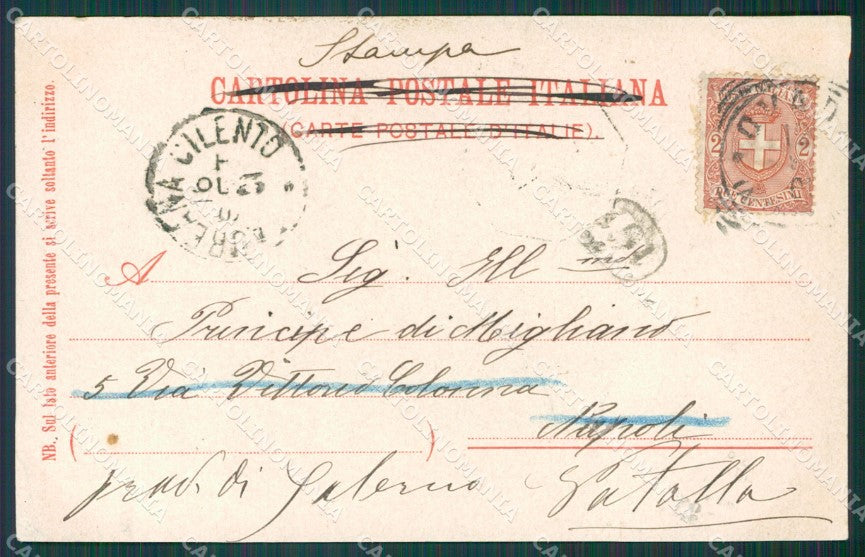 Stampa
CARTOLINA POSTALE ITALIANA
(CARTE POSTALE D'ITALIE).
CILENTO
2 2
CENTESIMI
A Sig. Ill mo
Principe di Migliano
5 Via Vittoria Colonna
Napoli
prov di Salerno
NB. Sul lato anteriore della presente si scrive soltanto l'indirizzo.
CARTOLINOMANIA